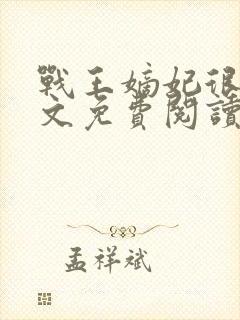 戰王嫡妃很
文免費閱讀
孟祥斌